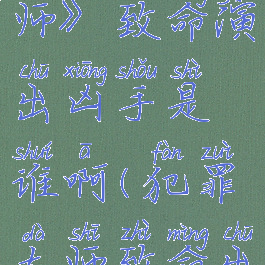 师》 致命演
chū xiōng shǒu shì
出凶手是
shuí ā fàn zuì
谁啊(犯罪
dà shī zhì mìng chū
大师致命出